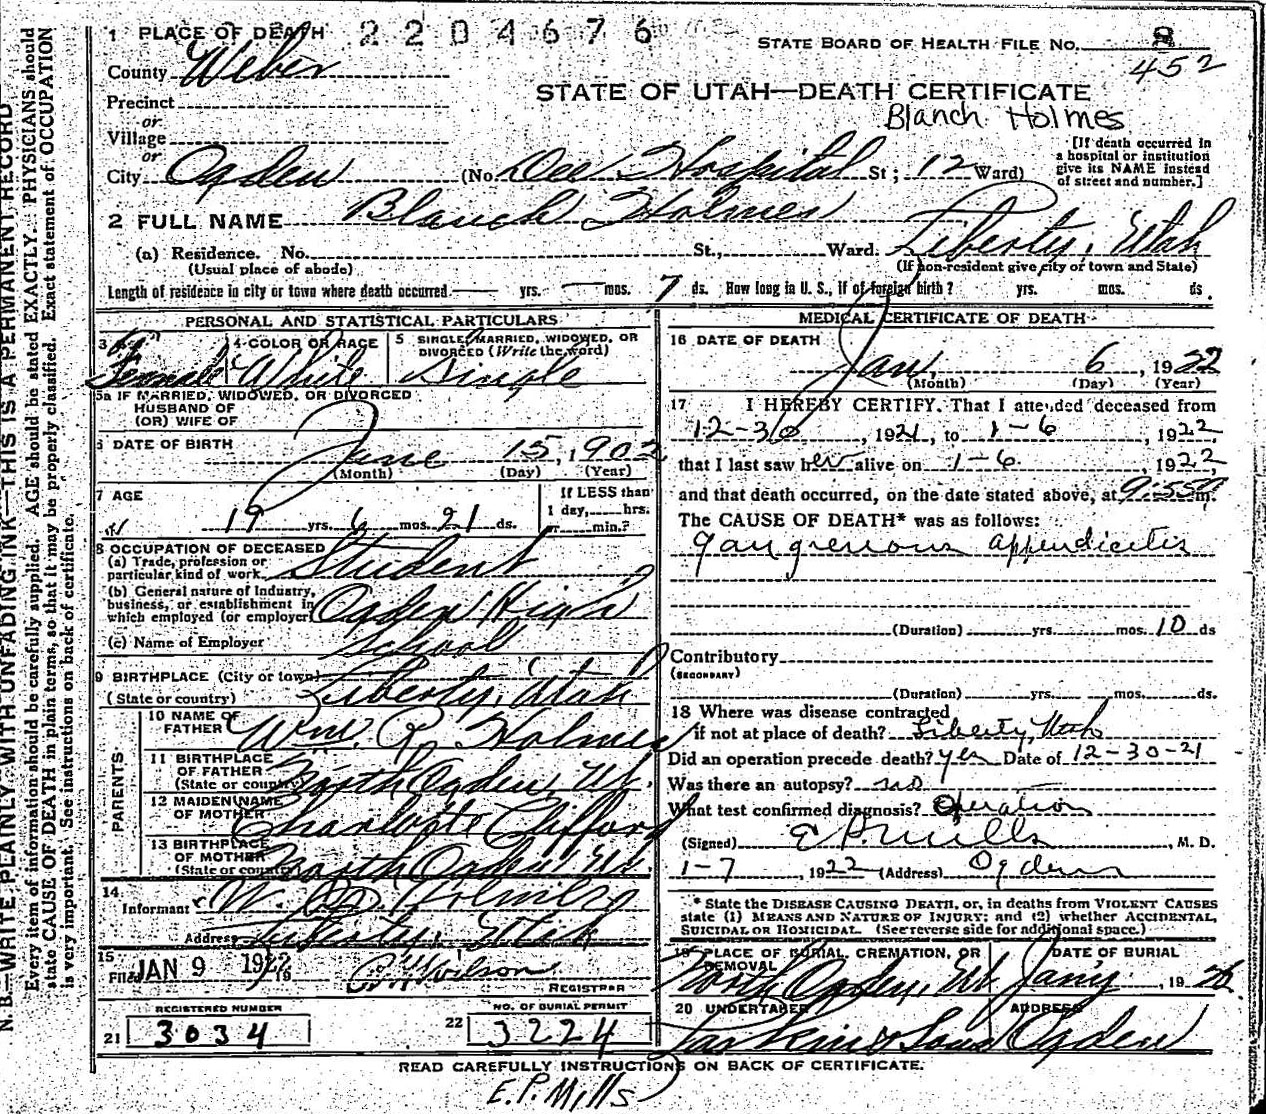 1 PLACE OF DEATH 2204676
STATE BOARD OF HEALTH FILE No. 8
452
County Weber
STATE OF UTAH—DEATH CERTIFICATE
Blanch Holmes
Precinct
or
Village
or
City Ogden (No Dee Hospital St; 12 Ward)
[If death occurred in
a hospital or institution
give its NAME instead
of street and number.]
2 FULL NAME Blanch Holmes
(a) Residence. No. St., Ward. Liberty, Utah
(Usual place of abode) (If non-resident give city or town and State)
Length of residence in city or town where death occurred — yrs. — mos. 7 ds. How long in U. S., if of foreign birth? yrs. mos. ds.
PERSONAL AND STATISTICAL PARTICULARS
3 Female
4 COLOR OR RACE White
5 SINGLE, MARRIED, WIDOWED, OR
DIVORCED (Write the word)
Single
5a IF MARRIED, WIDOWED, OR DIVORCED
HUSBAND OF
(OR) WIFE OF
6 DATE OF BIRTH
June 15, 1902
(Month) (Day) (Year)
7 AGE
19 yrs. 6 mos. 21 ds.
If LESS than
1 day, hrs.
or min.?
8 OCCUPATION OF DECEASED
(a) Trade, profession or
particular kind of work Student
(b) General nature of Industry,
business, or establishment in
which employed (or employer) Ogden High
(c) Name of Employer School
9 BIRTHPLACE (City or town)
(State or country) Liberty, Utah
PARENTS
10 NAME OF
FATHER Wm. R. Holmes
11 BIRTHPLACE
OF FATHER
(State or country) North Ogden, Ut.
12 MAIDEN NAME
OF MOTHER Charlotte Clifford
13 BIRTHPLACE
OF MOTHER
(State or country) North Ogden Ut.
14
Informant W. R. Holmes
Address Liberty, Utah
15
Filed JAN 9 1922
REGISTRAR
REGISTERED NUMBER
21 3034
NO. OF BURIAL PERMIT
22 3224
MEDICAL CERTIFICATE OF DEATH
16 DATE OF DEATH
Jan, 6, 1922
(Month) (Day) (Year)
17 I HEREBY CERTIFY. That I attended deceased from
12-30, 1921, to 1-6, 1922,
that I last saw her alive on 1-6 1922,
and that death occurred, on the date stated above, at 9:55 m.
The CAUSE OF DEATH* was as follows:
gangrenous appendicitis
(Duration) yrs. mos. 10 ds
Contributory
(SECONDARY)
(Duration) yrs. mos. ds.
18 Where was disease contracted
if not at place of death? Liberty, Utah
Did an operation precede death? yes Date of 12-30-21
Was there an autopsy? no
What test confirmed diagnosis? Operation
(Signed) E P. Mills, M. D.
1-7, 1922 (Address) Ogden
* State the DISEASE CAUSING DEATH, or, in deaths from VIOLENT CAUSES
state (1) MEANS AND NATURE OF INJURY; and (2) whether ACCIDENTAL,
SUICIDAL OR HOMICIDAL. (See reverse side for additional space.)
19 PLACE OF BURIAL, CREMATION, OR
REMOVAL
North Ogden, Ut
DATE OF BURIAL
20 UNDERTAKER Larkin & Sons
ADDRESS Ogden
READ CAREFULLY INSTRUCTIONS ON BACK OF CERTIFICATE.
E.P. Mills
N. B.—WRITE PLAINLY, WITH UNFADING INK—THIS IS A PERMANENT RECORD
Every item of information should be carefully supplied. AGE should be stated EXACTLY. PHYSICIANS should
state CAUSE OF DEATH in plain terms, so that it may be properly classified. Exact statement of OCCUPATION
is very important. See instructions on back of certificate.